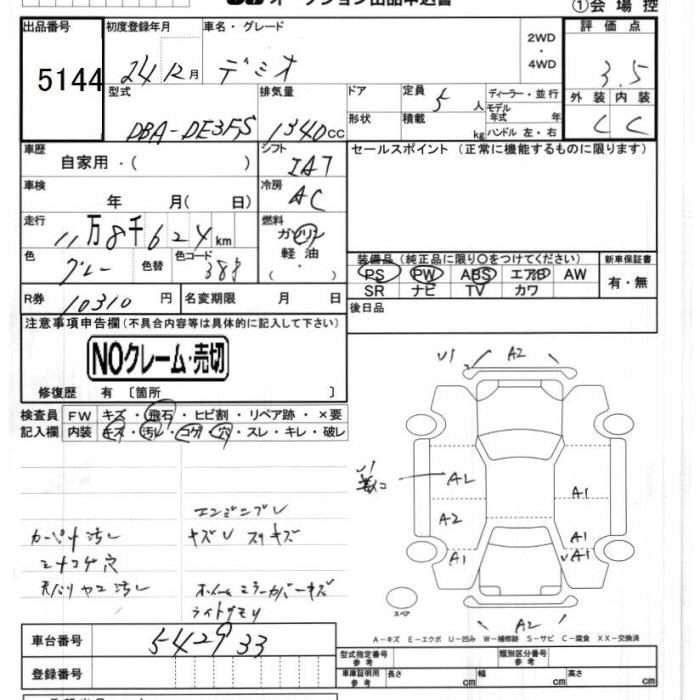 オークション出品申込書
①会場控
出品番号 初度登録年月 車名・グレード 2WD・4WD 評価点
5144 24 12月 デミオ 3.5
型式 排気量 ドア 定員 ディーラー・並行 外装 内装
DBA-DE3FS 1340cc 5人 モデル年式 年式 C C
形状 積載 kg ハンドル 左・右
車歴 シフト セールスポイント (正常に機能するものに限ります)
自家用・( ) IAT
車検 冷房
年 月( 日) AC
走行 燃料
11万8千624km ガソリン
軽油
色 色替 色コード ・( )
グレー 388
装備品 (純正品に限り○をつけてください) 新車保証書
PS PW ABS エアB AW 有・無
SR ナビ TV カワ
R券 10310円 名変期限 月 日
後日品
注意事項申告欄(不具合内容等は具体的に記入して下さい)
NOクレーム・売切
修復歴 有 〔箇所 〕
検査員 FW キズ・飛石・ヒビ割・リペア跡・×要
記入欄 内装 キズ・汚レ・コゲ・穴・スレ・キレ・破レ
カーペット汚レ
シートコゲ穴
天バリヤニ汚レ
キズU スリキズ
ホイールミラーカバーキズ
ライトクモリ
U1 A2
A2 A1
A2
A1 A1 A1
A2
スペア
A-キズ E-エクボ U-凹み W-補修跡 S-サビ C-腐食 XX-交換済
車台番号 542933
登録番号
型式指定番号 参考 類別区分番号 参考
車庫証明用 参考 長さ cm 幅 cm 高さ cm